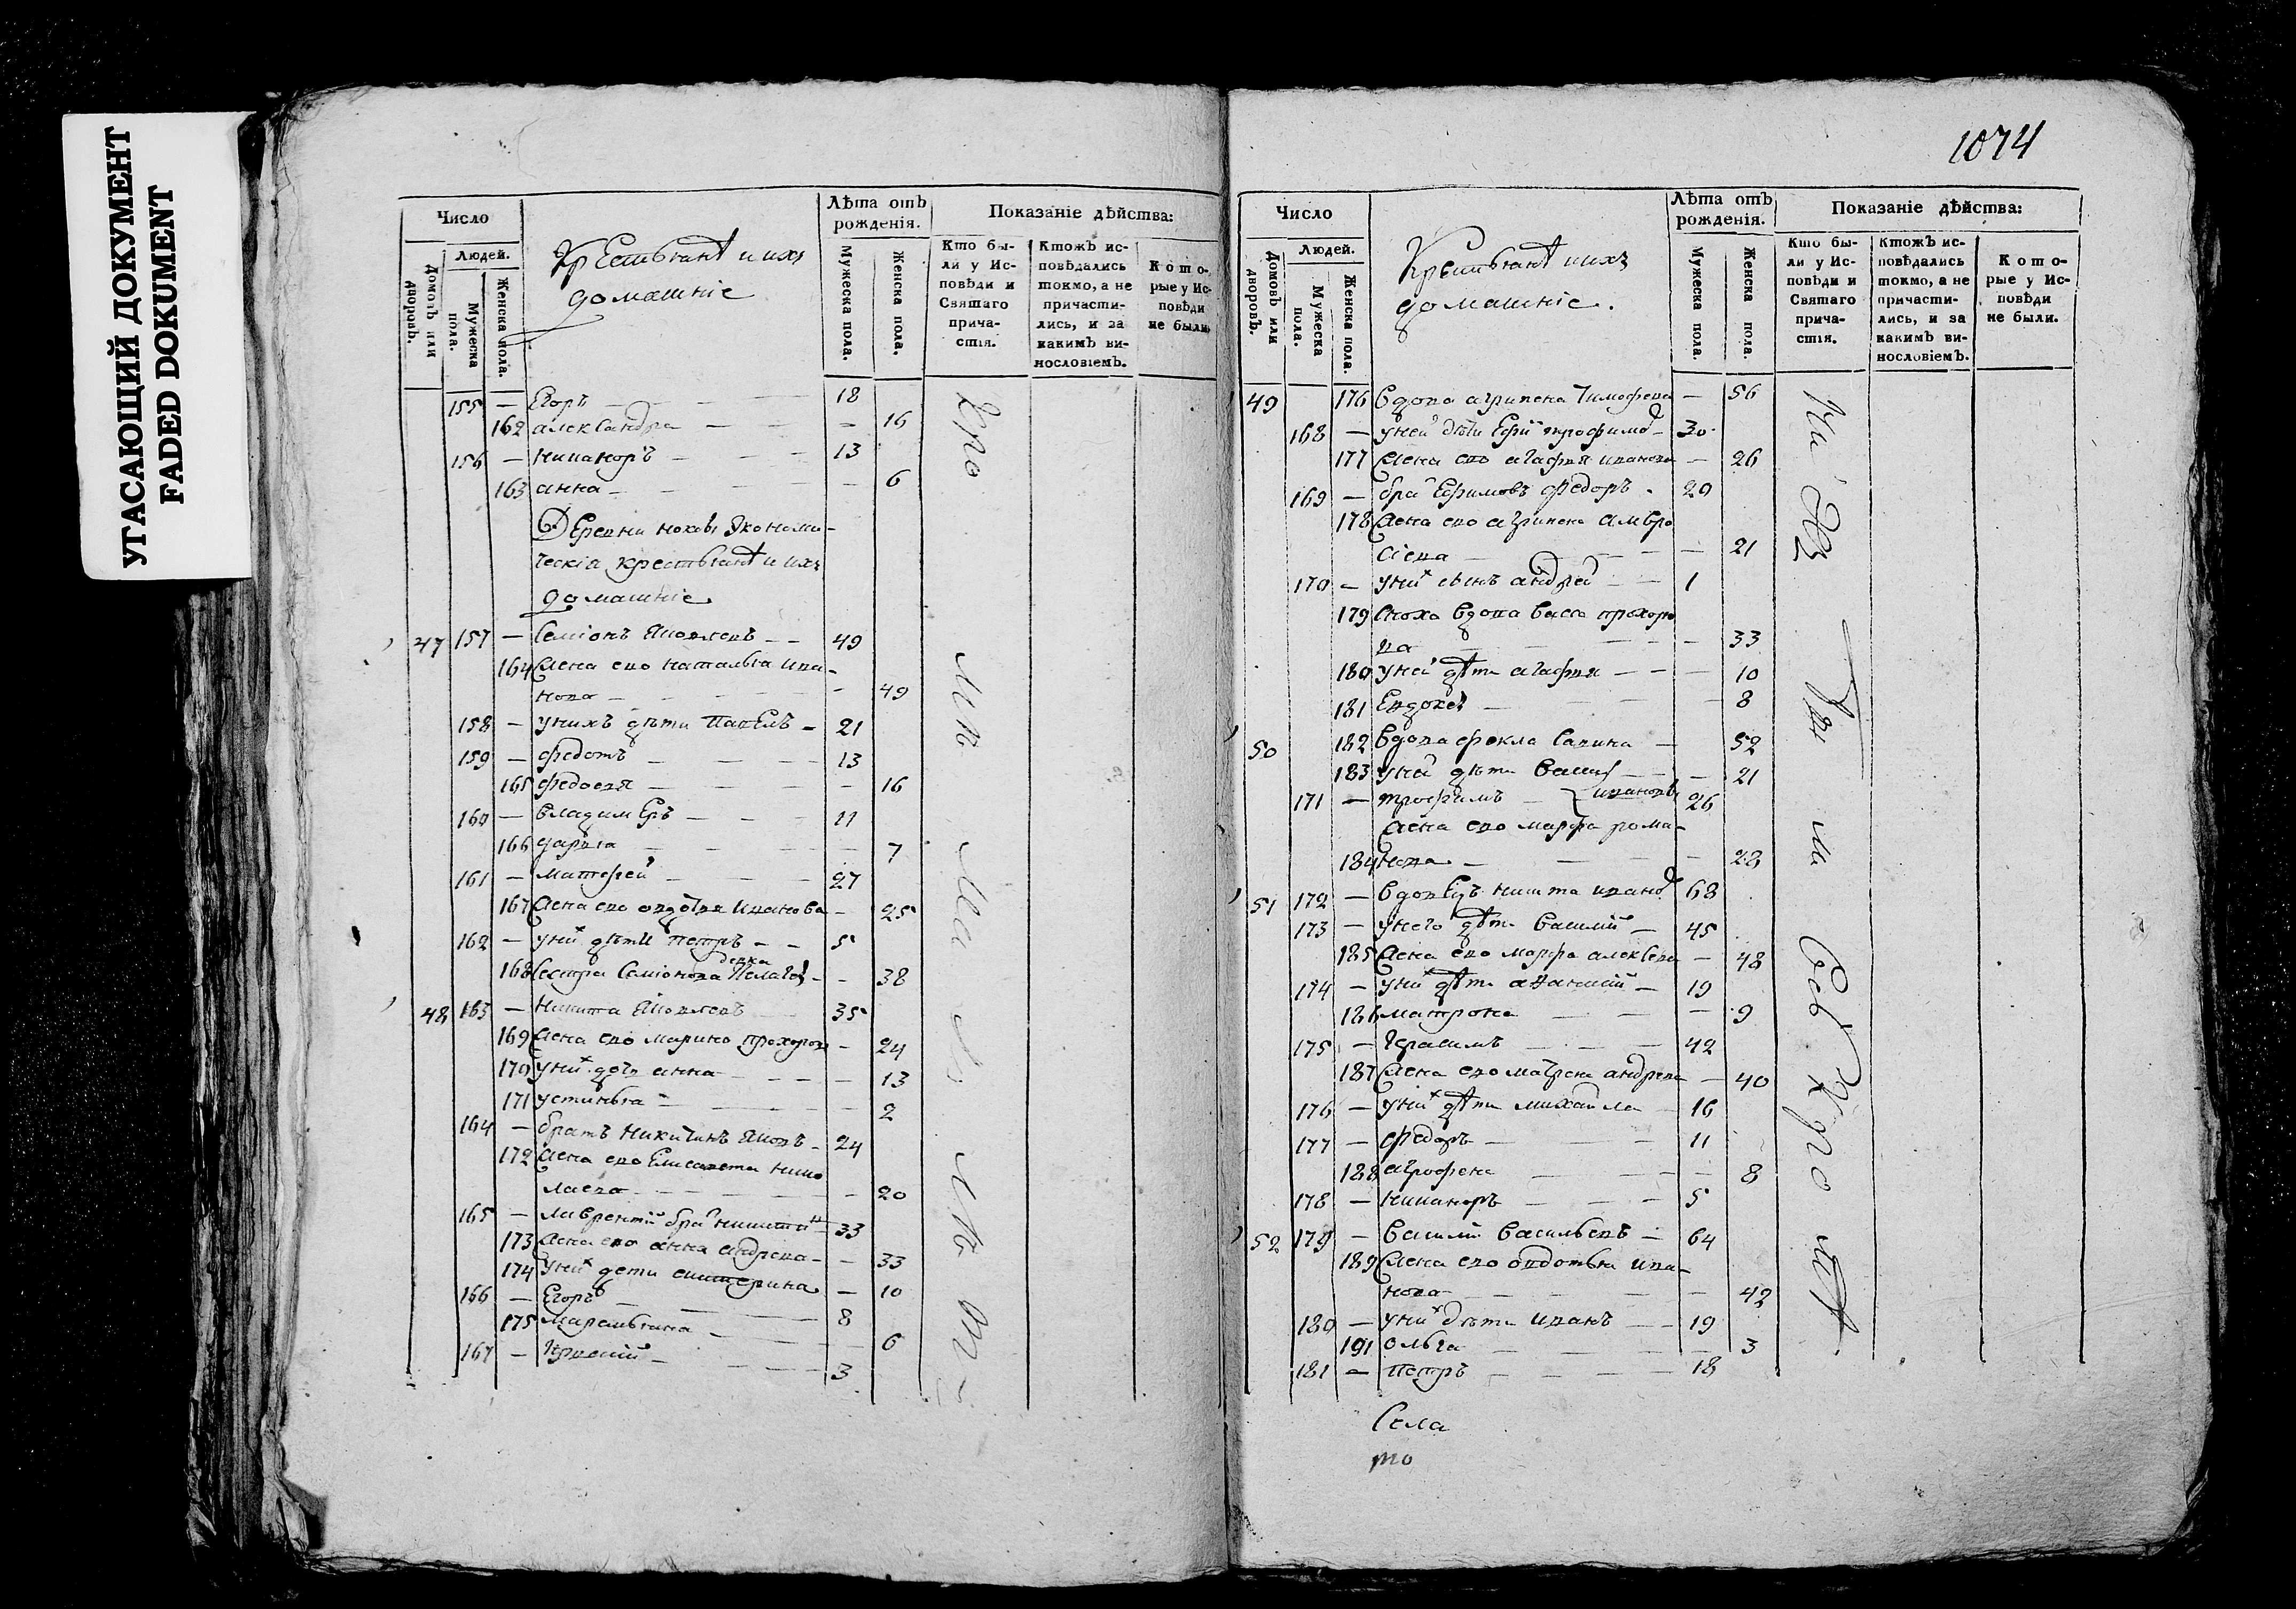 УГАСАЮЩИЙ ДОКУМЕНТ
FADED DOKUMENT
Число
Людей.
Домовъ или дворовъ.
Мужеска пола.
Женска пола.
Крестьянѣ и ихъ
домашніе
Лѣта отъ рожденія.
Мужеска пола.
Женска пола.
Показаніе дѣйства:
Кто бы-
ли у Ис-
повѣди и
Святаго
прича-
стія.
Ктожъ ис-
повѣдались
токмо, а не
причасти-
лись, и за
какимъ ви-
нословіемъ.
Кото-
рые у Ис-
повѣди
не были.
155 — Егоръ — 18
162 александра — 16
156 — никаноръ — 13
163 анна — 6
Деревни Экономи-
ческія крестьянѣ и ихъ
домашніе
47 157 — Семіонъ Яковлевъ — 49
164 жена ево наталья ива-
нова — 49
158 — у нихъ дѣти Павелъ — 21
159 — федотъ — 13
165 федосья — 16
160 — владимеръ — 11
166 дарья — 7
161 — матфей — 27
167 жена ево овдотья иванова — 25
162 — у них дѣти петръ — 5
девка
168 сестра Семіонова Пелагея — 38
48 163 — Никита Яковлевъ 35
169 жена ево марина прохорова — 24
170 у них дочь анна — 13
171 устинья — 2
164 — братъ никитинъ Яковъ — 24
172 жена ево Елисавета нико
лаева — 20
165 — лаврентій бра никитин 33
173 жена ево анна андреева — 33
174 у них дети катерина — 10
166 — Егоръ — 8
175 — 6
167 — — 3
1074
Число
Людей.
Домовъ или дворовъ.
Мужеска пола.
Женска пола.
Крестьянѣ и ихъ
домашніе.
Лѣта отъ рожденія.
Мужеска пола.
Женска пола.
Показаніе дѣйства:
Кто бы-
ли у Ис-
повѣди и
Святаго
прича-
стія.
Ктожъ ис-
повѣдались
токмо, а не
причасти-
лись, и за
какимъ ви-
нословіемъ.
Кото-
рые у Ис-
повѣди
не были.
49 176 вдова агрипена Тимофеева — 56
168 — у ней дѣти Ефи трофимо — 30
177 жена ево агафья иванова — 26
169 — бра Ефимовъ федоръ — 29
178 жена ево агрипена амвро
сіева — 21
170 — у них сынъ андрей — 1
179 сноха вдова васса прохоро
ва — 33
180 у ней дѣти агафья — 10
181 Евдокея — 8
50 182 вдова фекла савина — 52
183 у ней дѣти — 21
171 — трофимъ — ивановы 26
жена ево марфа рома-
184 нова — 28
51 172 — вдовецъ никита ивано 68
173 — у него дѣти василий — 45
185 жена ево марфа алексеева — 48
174 — у них дѣти афанасий — 19
186 матрона — 9
175 — Герасимъ — 42
187 жена ево матрена андреева — 40
176 — у них дѣти михайла — 16
177 — федоръ — 11
188 агрофена — 8
178 — никаноръ — 5
52 179 — василий васильевъ — 64
189 жена ево овдотья ива-
нова — 42
180 — у них дѣти иванъ — 19
191 ольга — 3
181 — петръ — 18
Села
то